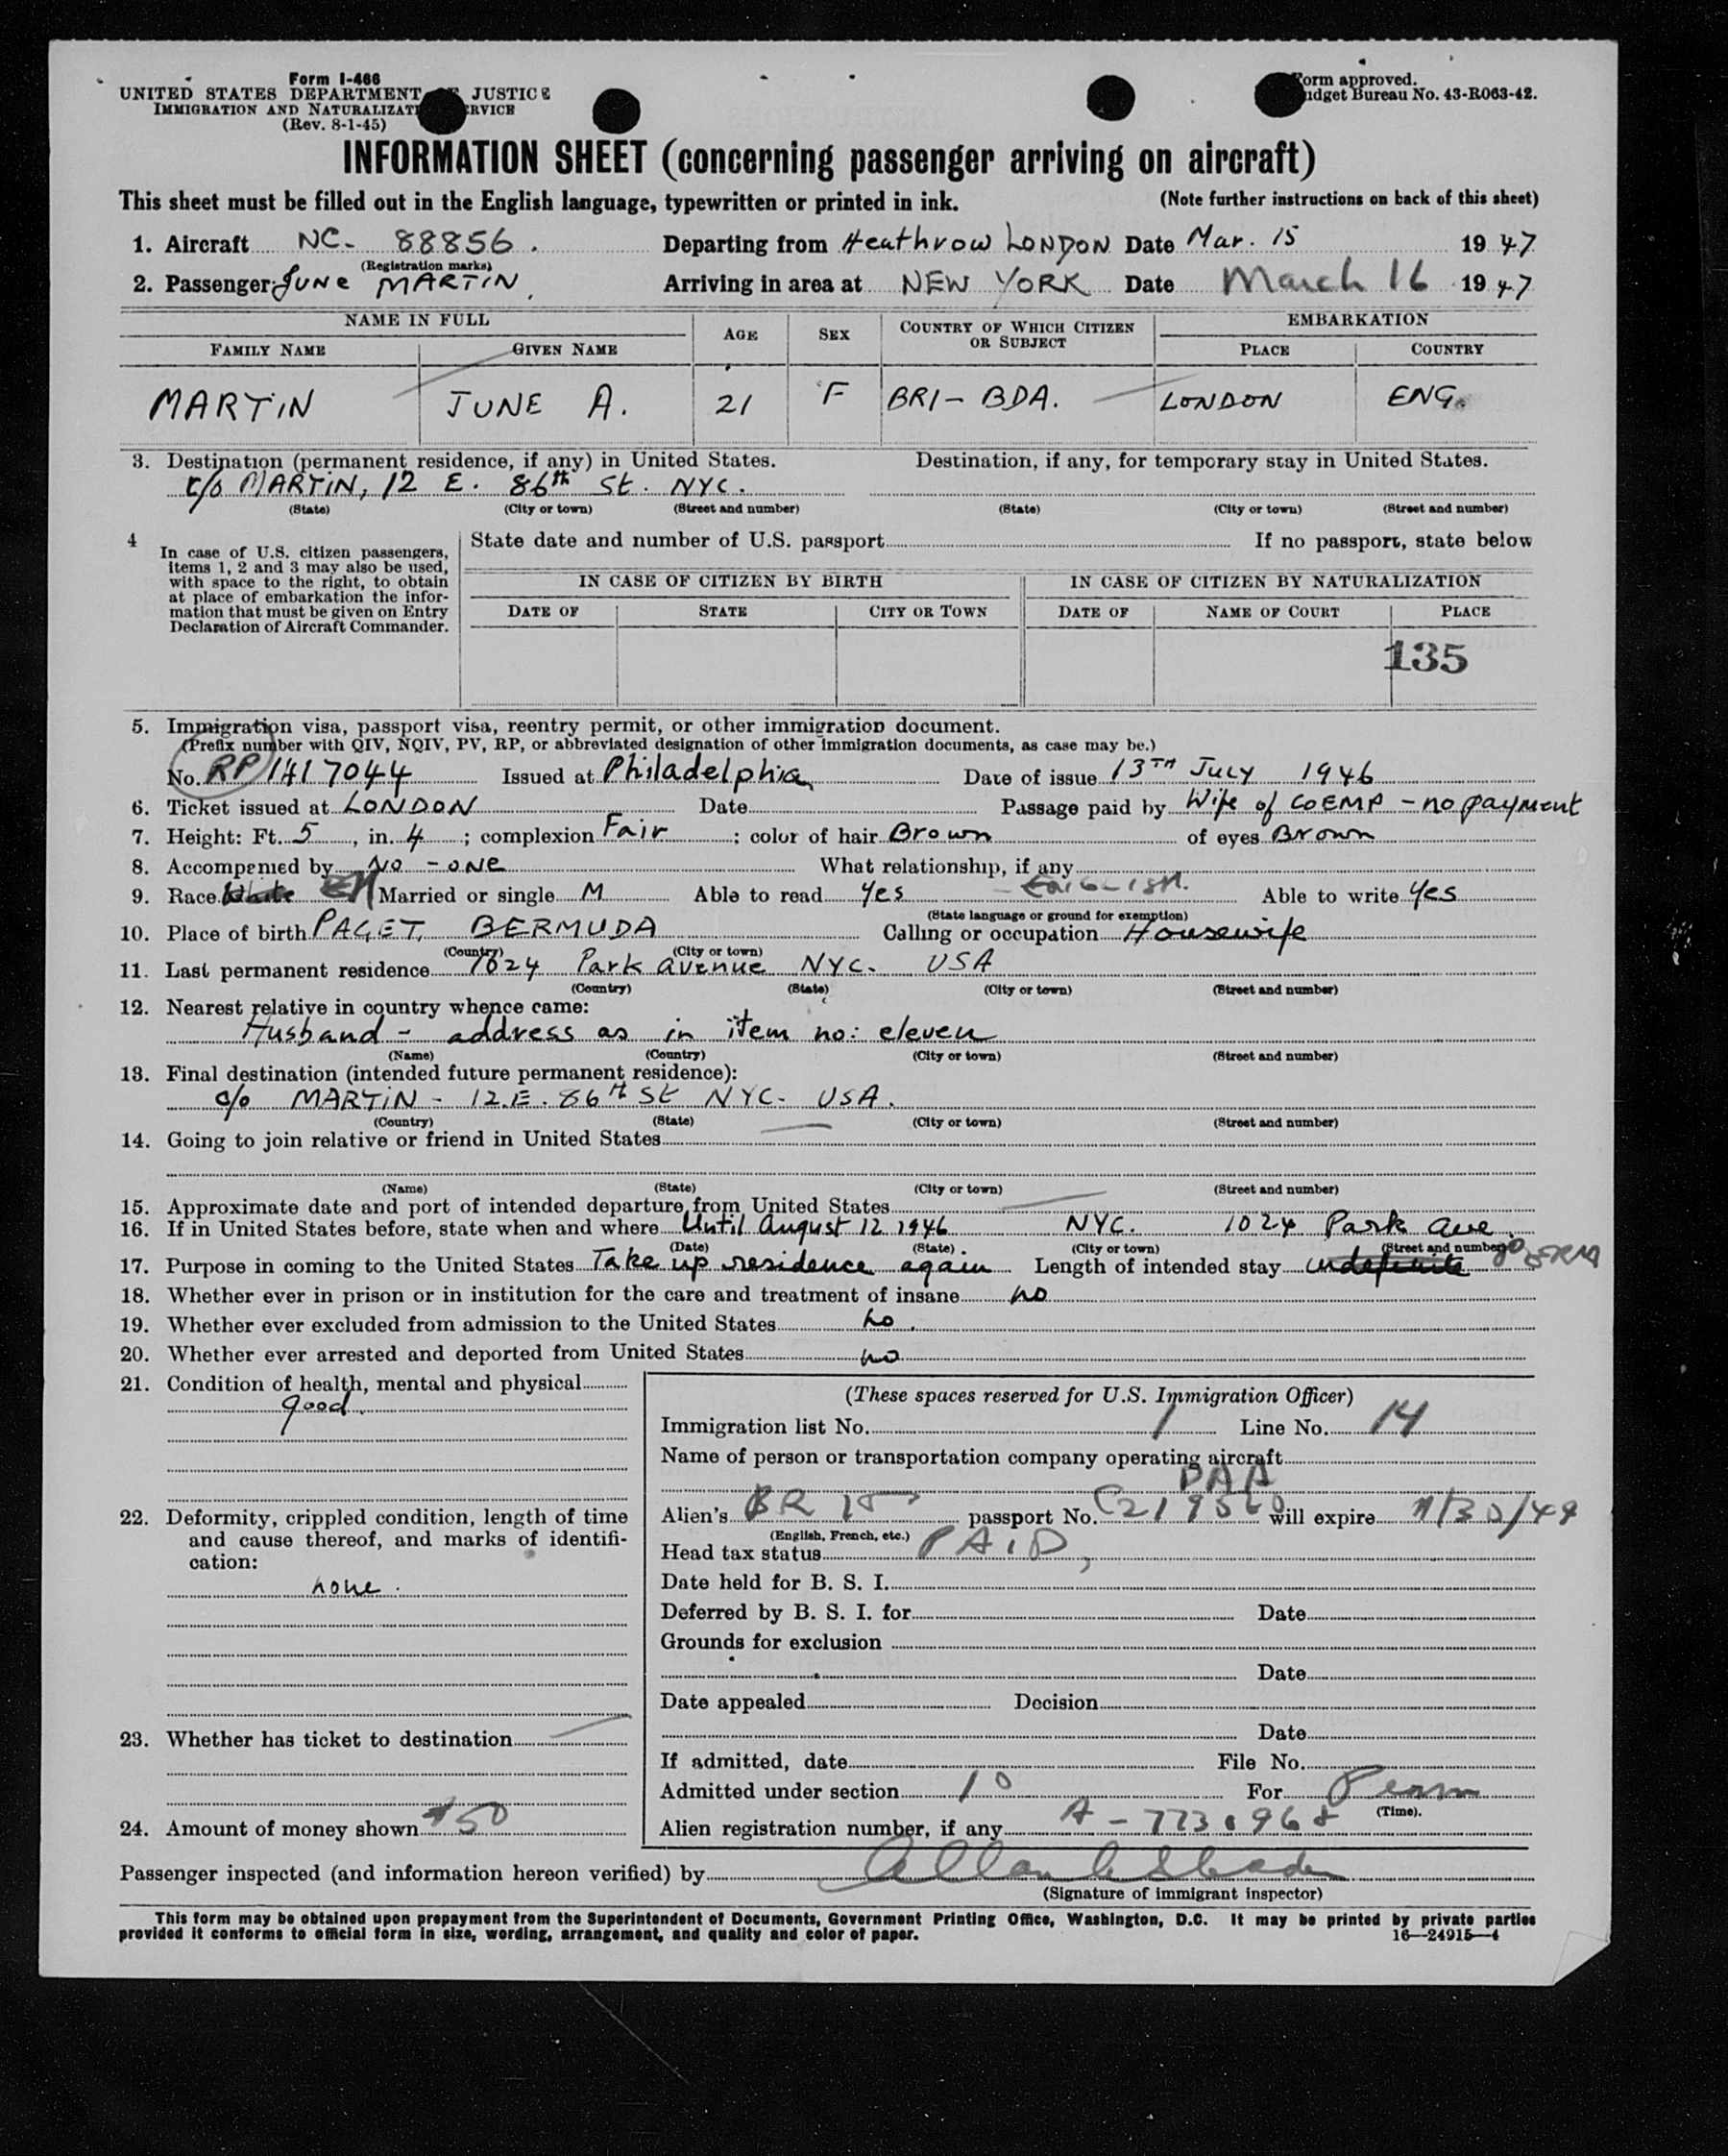 Form I-466
UNITED STATES DEPARTMENT JUSTICE
IMMIGRATION AND
(Rev. 8-1-45)
Form approved.
Budget Bureau No. 43-R063-42.
INFORMATION SHEET (concerning passenger arriving on aircraft)
This sheet must be filled out in the English language, typewritten or printed in ink. (Note further instructions on back of this sheet)
1. Aircraft NC- 88856. Departing from Heathrow LONDON Date Mar. 15 1947
(Registration marks)
2. Passenger JUNE MARTIN, Arriving in area at NEW YORK Date March 16 1947
NAME IN FULL AGE SEX COUNTRY OF WHICH CITIZEN OR SUBJECT EMBARKATION
FAMILY NAME GIVEN NAME PLACE COUNTRY
MARTIN JUNE A. 21 F BRI- BDA. LONDON ENG.
3. Destination (permanent residence, if any) in United States. Destination, if any, for temporary stay in United States.
c/o MARTIN, 12 E. 86th St. NYC.
(State) (City or town) (Street and number) (State) (City or town) (Street and number)
4 In case of U.S. citizen passengers, items 1, 2 and 3 may also be used, with space to the right, to obtain at place of embarkation the information that must be given on Entry Declaration of Aircraft Commander.
State date and number of U.S. passport If no passport, state below
IN CASE OF CITIZEN BY BIRTH IN CASE OF CITIZEN BY NATURALIZATION
DATE OF STATE CITY OR TOWN DATE OF NAME OF COURT PLACE
135
5. Immigration visa, passport visa, reentry permit, or other immigration document.
(Prefix number with QIV, NQIV, PV, RP, or abbreviated designation of other immigration documents, as case may be.)
No. RP 1417044 Issued at Philadelphia Date of issue 13TH July 1946
6. Ticket issued at LONDON Date Passage paid by Wife of CoEMP - no payment
7. Height: Ft. 5, in. 4; complexion Fair; color of hair Brown of eyes Brown
8. Accompanied by No-one What relationship, if any
9. Race White EN Married or single M Able to read yes English. Able to write yes
(State language or ground for exemption)
10. Place of birth PAGET, BERMUDA Calling or occupation Housewife
(Country) (City or town)
11. Last permanent residence 1024 Park avenue NYC. USA
(Country) (State) (City or town) (Street and number)
12. Nearest relative in country whence came:
Husband - address as in item no: eleven
(Name) (Country) (City or town) (Street and number)
13. Final destination (intended future permanent residence):
c/o MARTIN - 12.E. 86th St NYC- USA.
(Country) (State) (City or town) (Street and number)
14. Going to join relative or friend in United States
(Name) (State) (City or town) (Street and number)
15. Approximate date and port of intended departure from United States
16. If in United States before, state when and where Until August 12 1946 NYC. 1024 Park ave.
(Date) (State) (City or town) (Street and number)
17. Purpose in coming to the United States Take up residence again Length of intended stay indefinite PERM
18. Whether ever in prison or in institution for the care and treatment of insane no
19. Whether ever excluded from admission to the United States no.
20. Whether ever arrested and deported from United States no
21. Condition of health, mental and physical
good.
22. Deformity, crippled condition, length of time and cause thereof, and marks of identification:
none.
23. Whether has ticket to destination
24. Amount of money shown $50
(These spaces reserved for U.S. Immigration Officer)
Immigration list No. 1 Line No. 14
Name of person or transportation company operating aircraft
PAA
Alien's passport No. will expire
(English, French, etc.)
Head tax status PAID,
Date held for B. S. I.
Deferred by B. S. I. for Date
Grounds for exclusion
Date
Date appealed Decision
Date
If admitted, date File No.
Admitted under section For Perm
(Time).
Alien registration number, if any
Passenger inspected (and information hereon verified) by
(Signature of immigrant inspector)
This form may be obtained upon prepayment from the Superintendent of Documents, Government Printing Office, Washington, D.C. It may be printed by private parties
provided it conforms to official form in size, wording, arrangement, and quality and color of paper. 16—24915—4